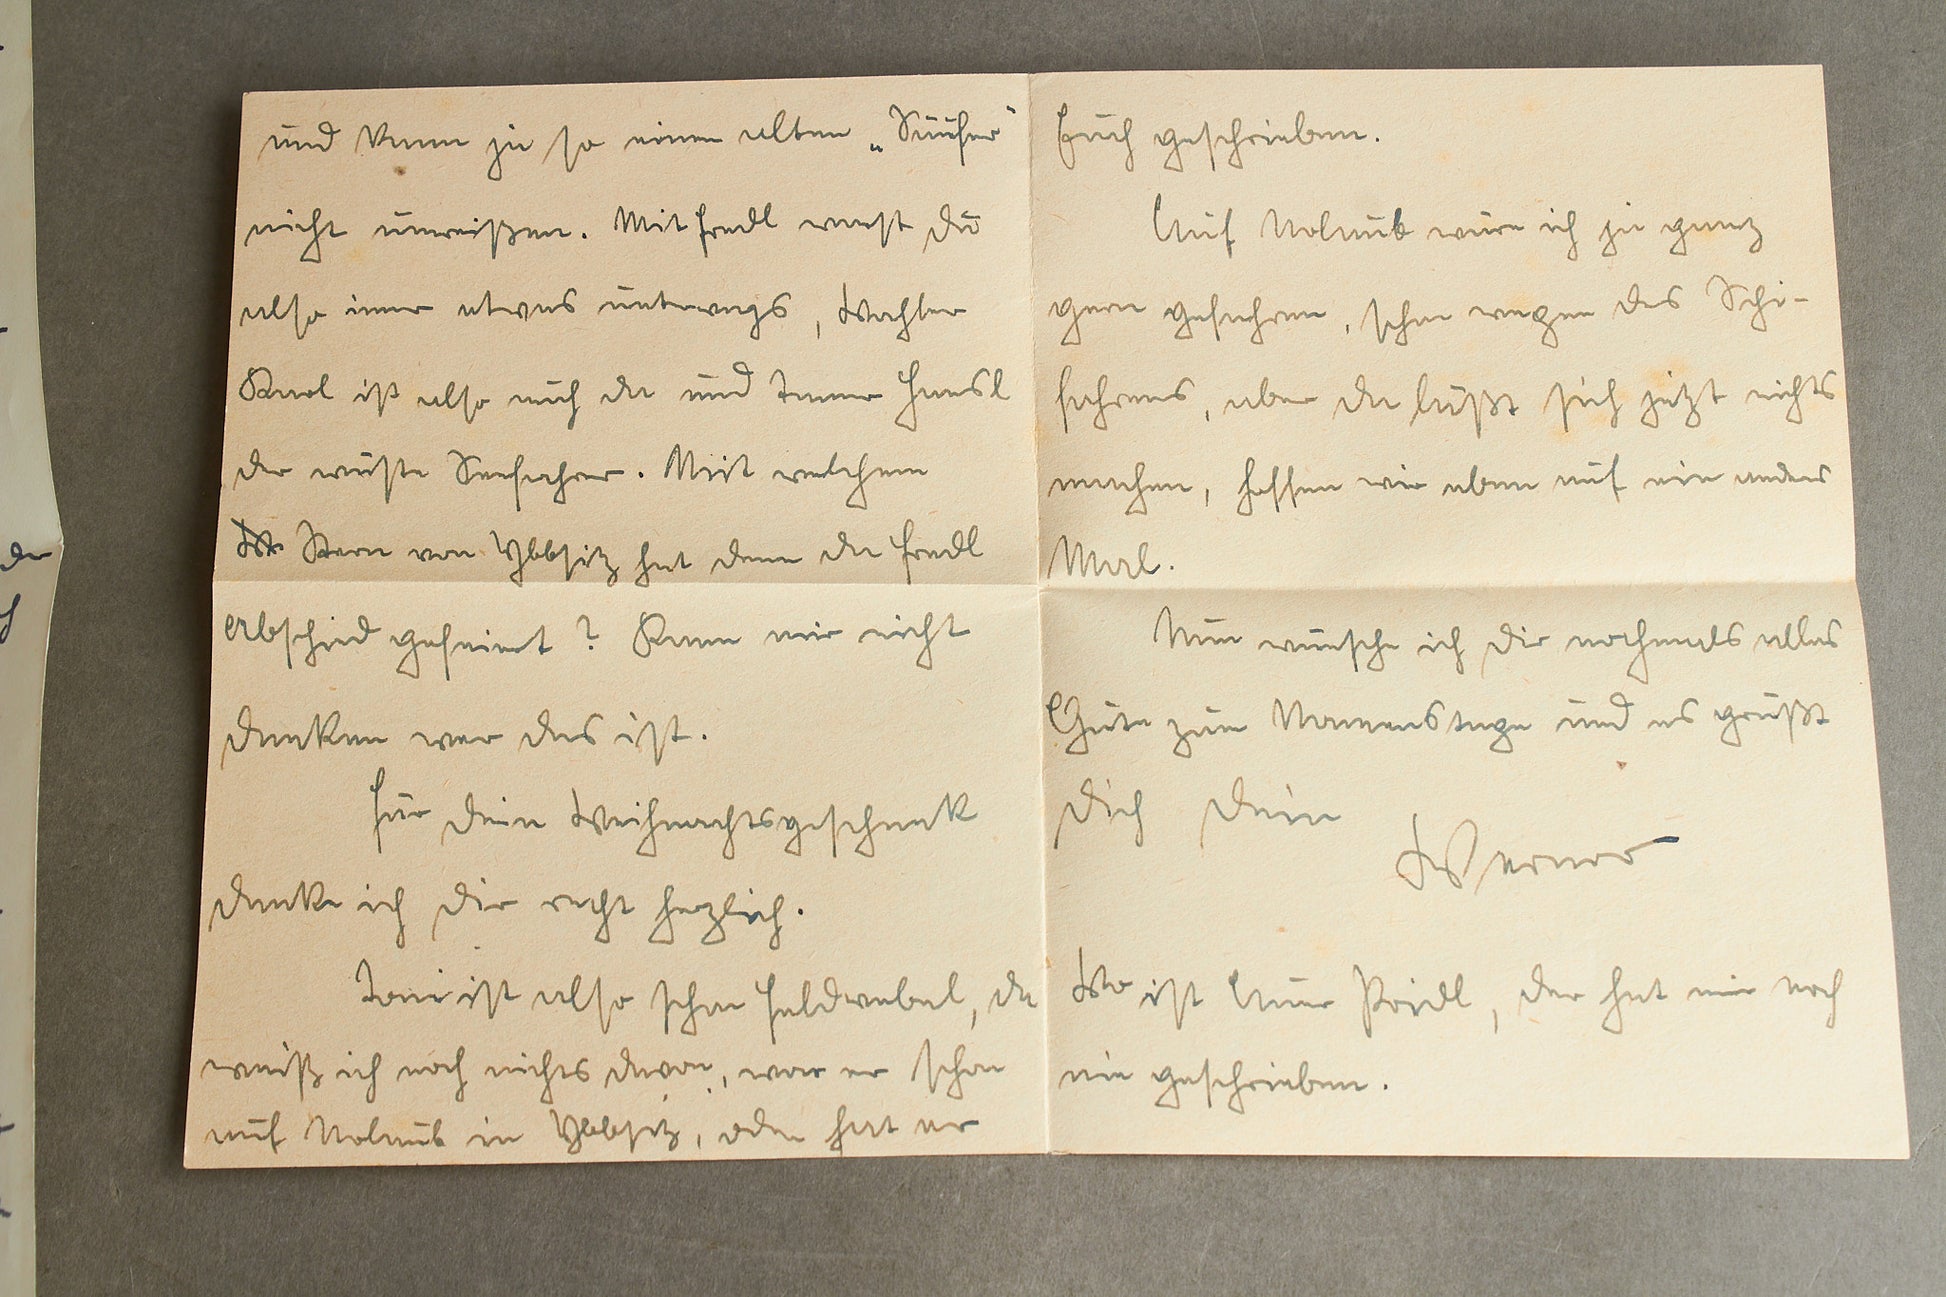 und kann ja so einen alten „Säufer"
nicht umreißen. Mit Fredl warst du
also immer etwas unterwegs, Wachter
Karl ist also auch da und Immer Hansl
der wüste Seefahrer. Mit welchem
Stern von Ybbsitz hat denn der Fredl
Abschied gefeiert? Kann mir nicht
denken wer das ist.
Für dein Weihnachtsgeschenk
danke ich dir recht herzlich.
Toni ist also schon Feldwebel, da
weiß ich noch nichts davon, war er schon
auf Urlaub in Ybbsitz, oder hat er
Euch geschrieben.
Auf Urlaub wäre ich ja ganz
gern gefahren, schon wegen des Schi-
fahrens, aber da läßt sich jetzt nichts
machen, hoffen wir eben auf ein anders
Mal.
Nun wünsche ich dir nochmals alles
Gute zum Namenstage und es grüßt
Dich Dein
Werner
Wo ist der hat mir noch
nie geschrieben.